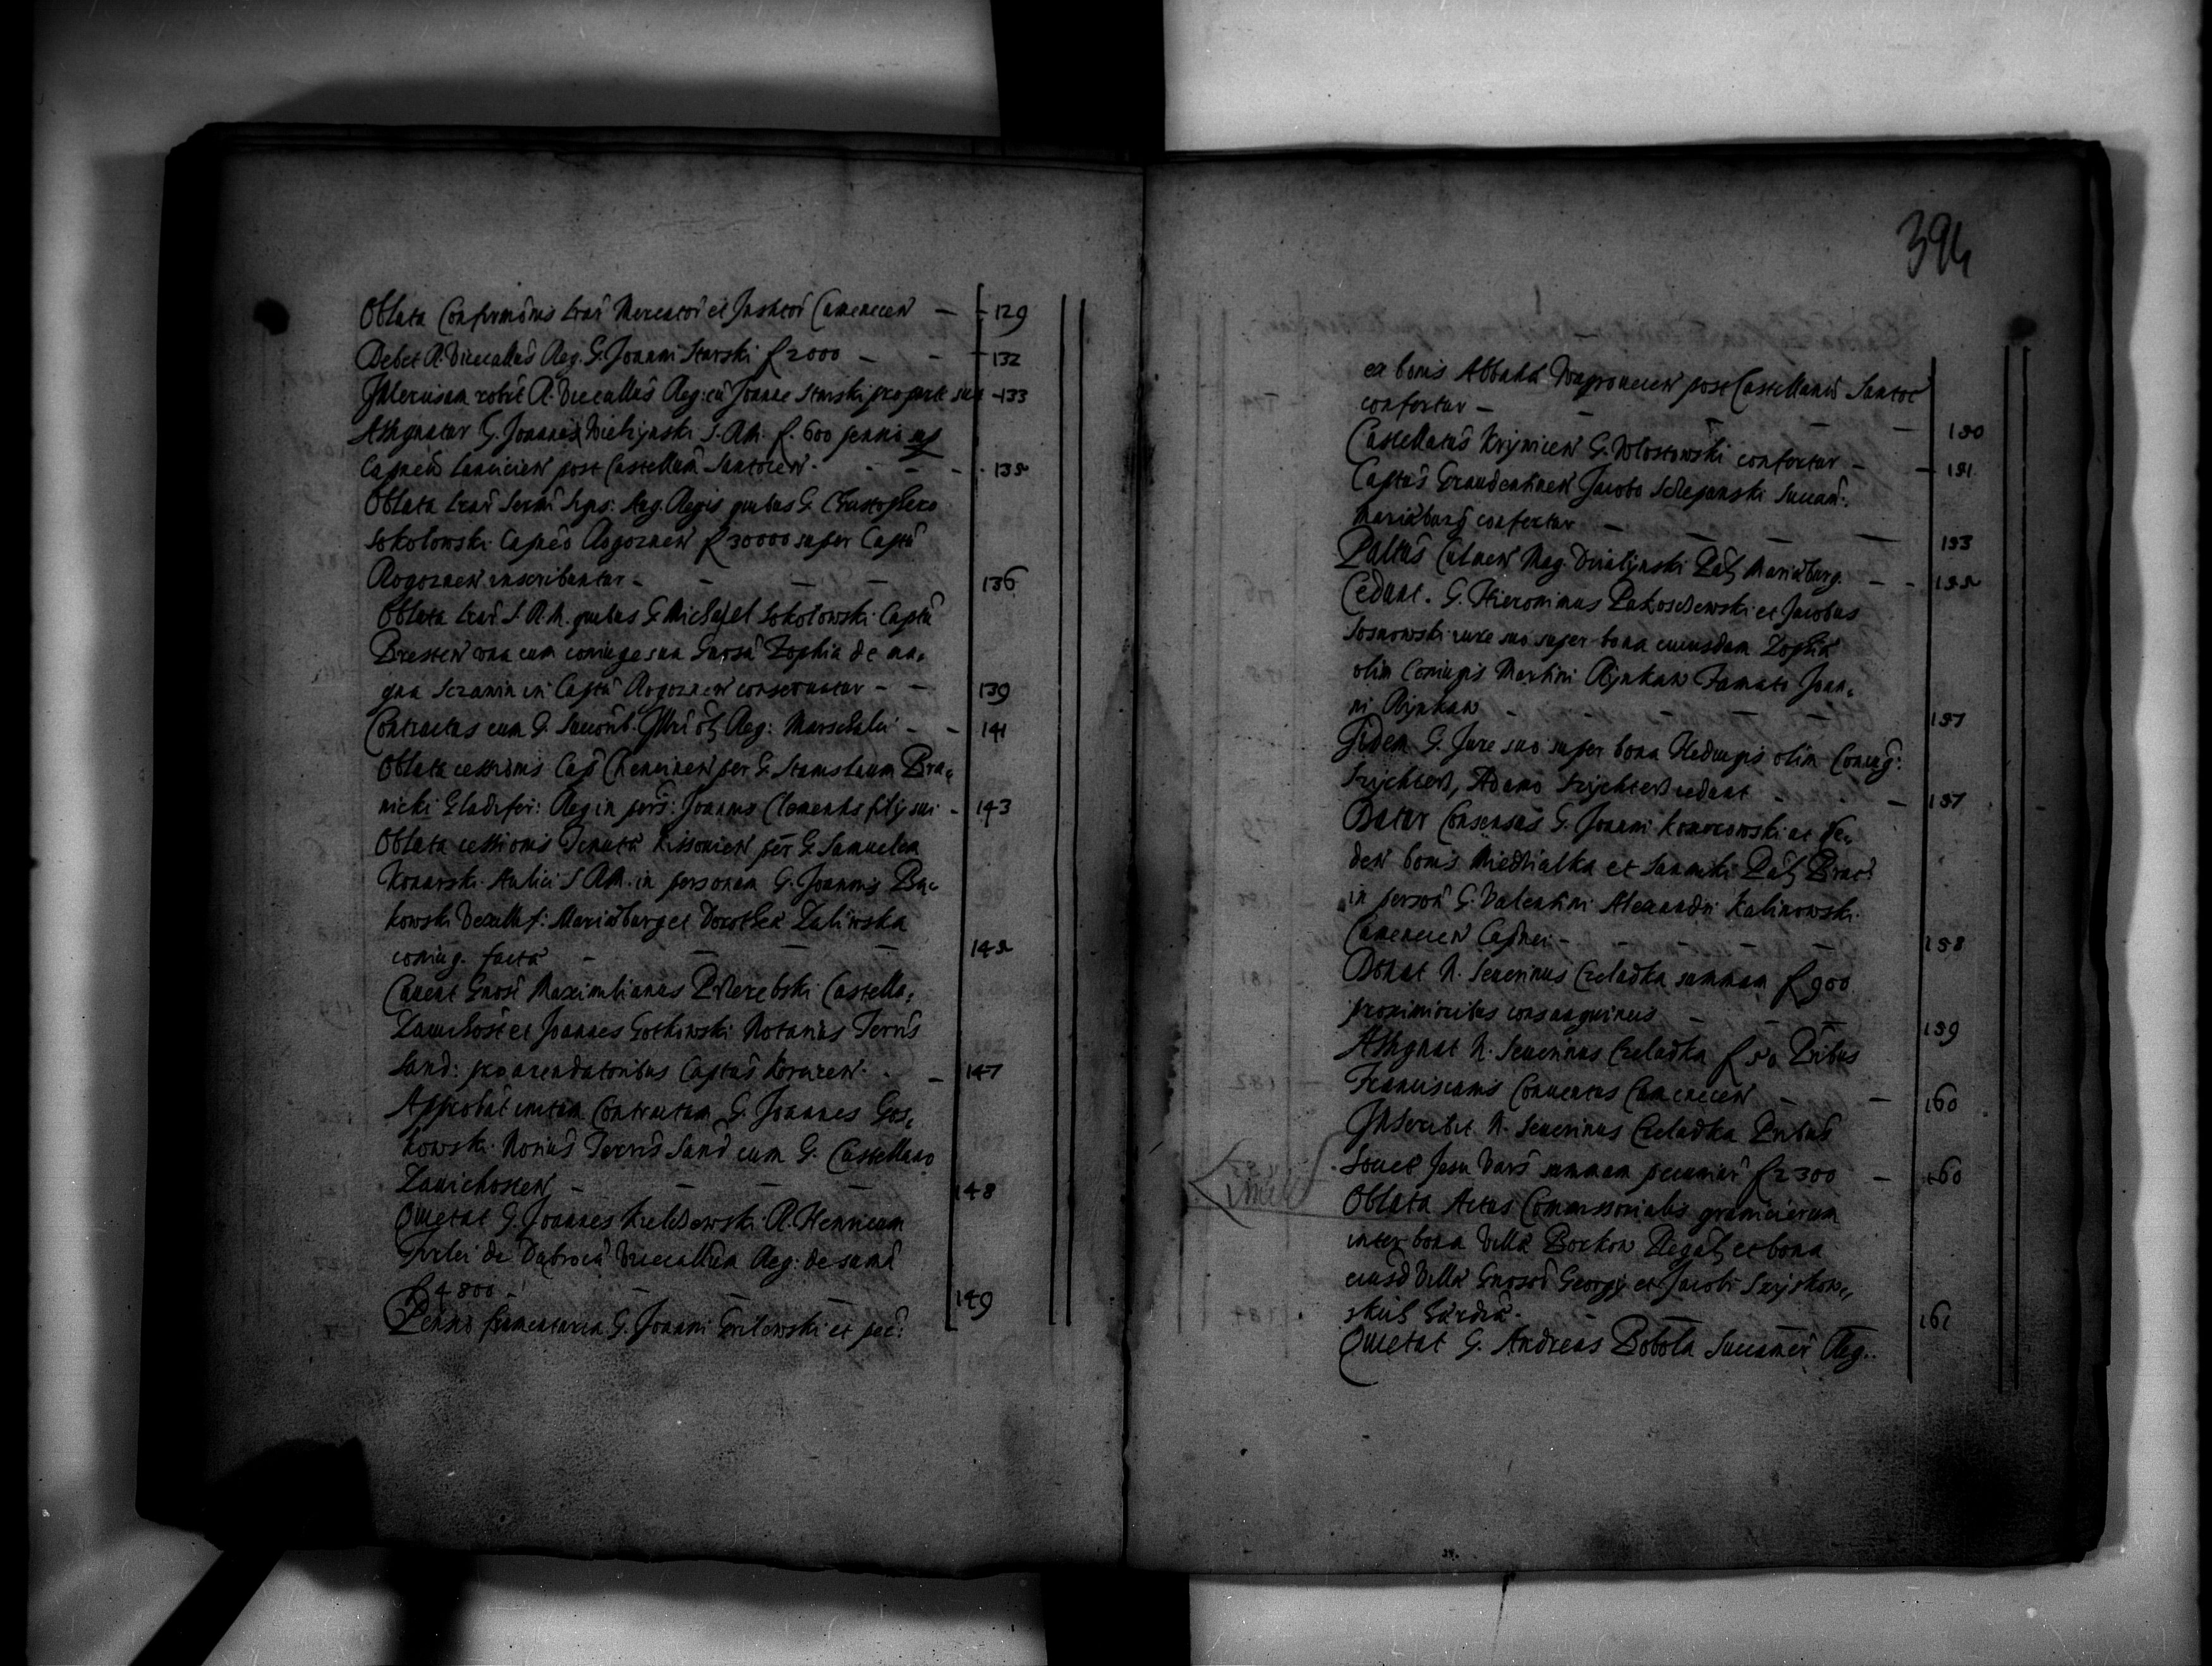 Oblata Confirmaõnis Lrar̃ Mercator̃ et Institor̃ Camenecen̄ — 129
Debet R. Vicecallus Reg. G. Joanni Starski f 2000 — - 132
Inscrisam robet R. Vicecallus Reg: cū Joanne Starski pro parte sua - 133
Assignatur G. Joannes Bielzynski S. R. M. f. 600 penns
Capneo Lancicien̄ post Castellan̄ Santocen̄ - - - 135
Oblata Lrar̄ Sermi Sigs: Aug. Regis quibus G. Christophero
Sokolowski Capneo Rogoznen̄ f 30000 super Captu
Rogoznen̄ inscribuntur - - - - 136
Oblata Lrar̄ S. R. M. quibus G. Michael Sokolowski Captu
Bresten̄ una cum coniuge sua Gnosa Zophia de ma=
gna Sczawin in Captu Rogoznen̄ conseruatur - - 139
Contractus cum G. Marschalci - - 141
Oblata cessionis Cap Chencinen̄ per G. Stanislaum Bra=
nicki Gladifer: Reg in pers: Joannis Clementis filij sui - 143
Oblata cessionis Tenuta Kissouien̄ per G. Samuelem
Konarski Aulici S R M. in personam G. Joannis Ba=
kowski Vexillif: Mariæburg et Dorothea Zaliwska
coniug. facta - - - 145
Cauent Gnosi Maximilianus Przerebski Castella=
Zauichost et Joannes Gotkowski Notarius Terr̃is
Sand: pro arendatoribus Captus Korczen̄. - 147
Approbat initum Contractum G. Joannes Gos=
kowski Norius Terr̃is Sand cum G. Castellano
Zauichosten̄ - - - - 148
Quietat G. Joannes Kielczowski R. Henricum
Firlei de Dąbrouica Vicecallum Reg: de suma
f 4800 - - - 149
Penno frumentaria G. Joanni Grilewski et pec:
394
ex bonis Abbatia Wagrouecen̄ post Castellanū Santoc
confertur - - - - 150
Castellatus Krzywicen̄ G. Wlostowski confertur - - 151
Captus Graudentinen̄ Jacobo Sczepanski Succam:
Mariæburg confertur - - - 153
Paltus Culmen̄ Mag. Dzialynski Pal Mariæburg. - - 155
Cedunt. G. Hieronimus Pakoszewski et Jacobus
Sosnowski iure suo super bona cuiusdam Zophia
olim Coniugis Martini Rynkaw Famato Joan=
ni Rynkaw - - - - 157
Idem G. Jure suo super bona Hedwigis olim Coniug:
Szychters, Adamo Szychters cedunt - - 157
Datur Consensus G. Joanni Komorowski ac
den̄ bonis Miedzialka et Sanniki Pal Brac
in person̄ G. Valentini Alexandri Kalinowski
Camenecen̄ Capnei - - - - 158
Donat N. Seuerinus Czeladka summam f 900
proximioribus consanguineis - - - 159
Assignat N. Seuerinus Czeladka f 50 Pribus
Franciscanis Conuentus Camenecen̄ - - 160
Inscribit N. Seuerinus Czeladka Pribus
Societ Jesu Vars summam pecuniar̄ f 2300 - 160
Oblata Actus Commissorialis granicierum
inter bona Villa Borkow Regal et bona
eiusd Villa Gnosor̄ Georgij et Jacobi Szyskow=
skich - - - 161
Quietat G. Andreas Bobola Succamer̄ Reg..